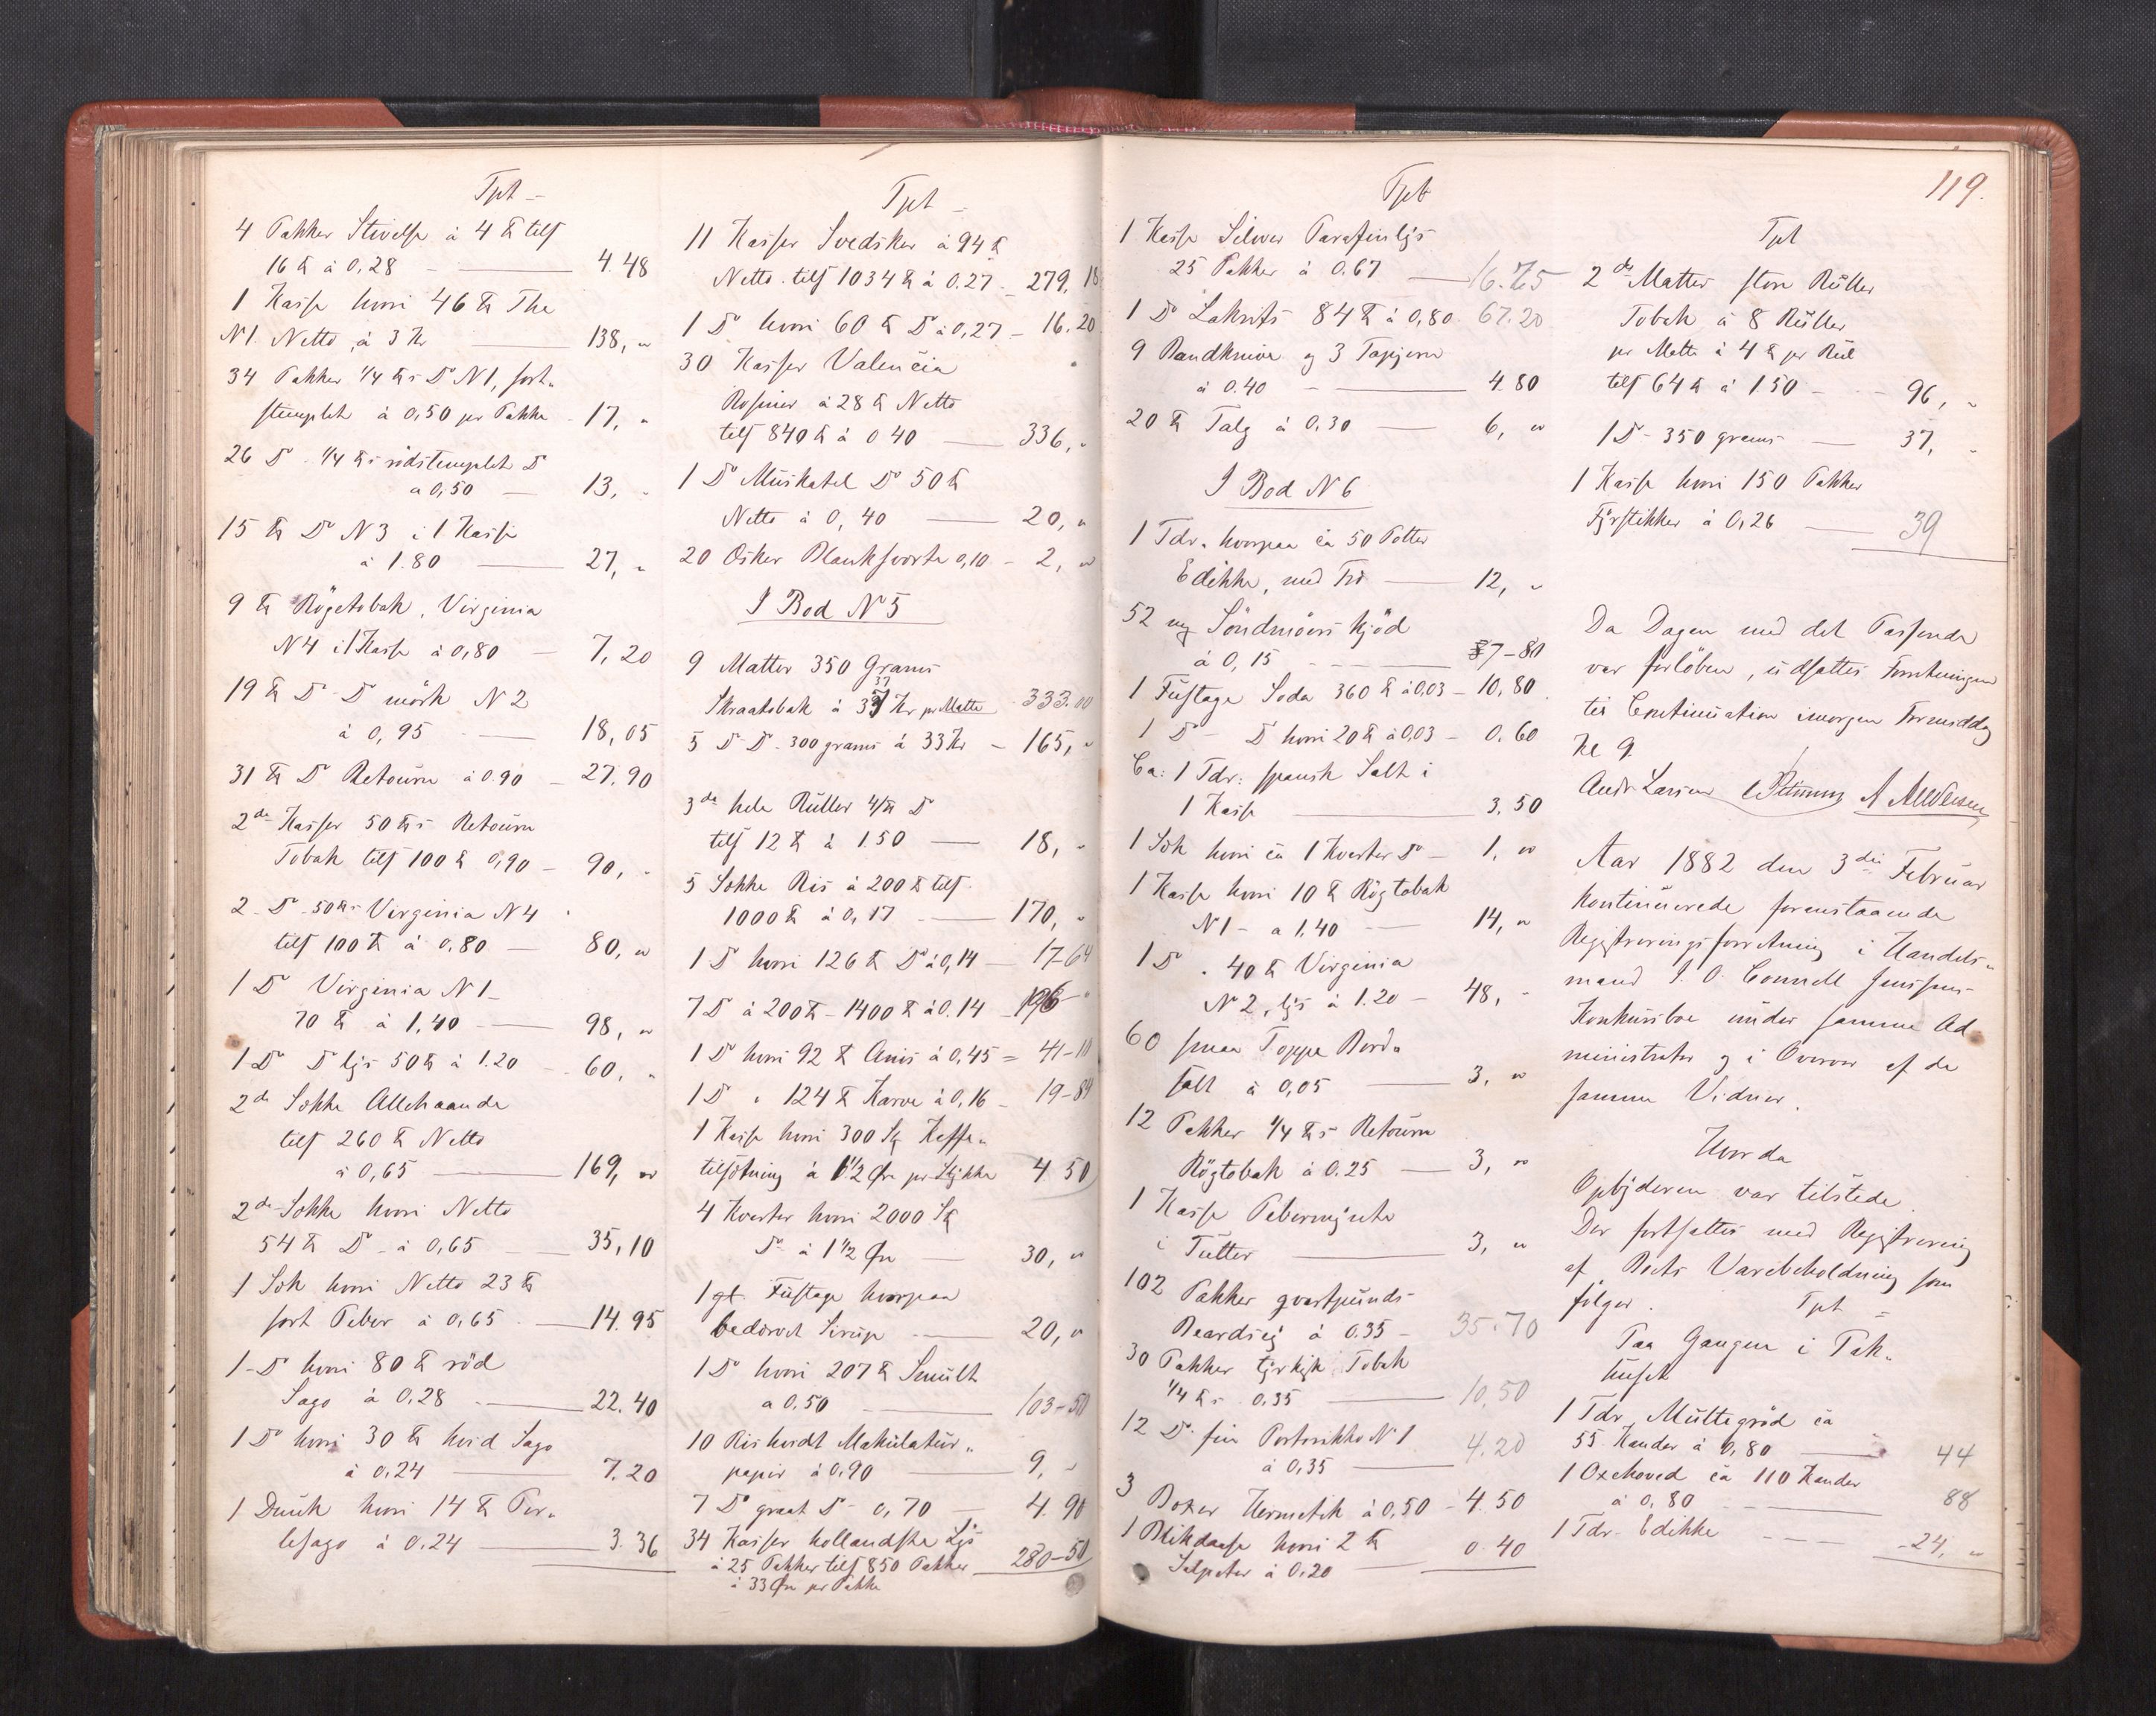 Tpt –
4 Pakker Stivelse à 4 ℔ tils
16 ℔ à 0,28 – 4.48
1 Kasse hvori 46 ℔ The
N 1. Netto, à 3 Kr 138, "
34 Pakker 1/4 ℔s Do N1, sort-
stemplet à 0,50 pr Pakke 17, "
26 Do 1/4 ℔s rödstemplet Do
a 0,50 – 13, "
15 ℔ Do N 3 i 1 Kasse
à 1.80 27, "
9 ℔ Rögetobak, Virginia
N4 i 1 Kasse à 0,80 – 7,20
19 ℔ Do Do mörk N 2
à 0,95 18,05
31 ℔ Do Retourn à 0.90 – 27.90
2de Kasser 50 ℔s Retourn
Tobak tils 100 ℔ 0,90 – 90, "
2 Do 50 ℔s Virginia N 4
tils 100 ℔ à 0.80 – 80, "
1 Do Virginia N 1 –
70 ℔ à 1,40 98, "
1 Do Do lys 50 ℔ à 1.20 – 60, "
2de Sække Allehaande
tils 260 ℔ Netto
à 0,65 169, "
2de Sække hvori Netto
54 ℔ Do à 0,65 35,10
1 Sæk hvori Netto 23 ℔
sort Peber à 0,65 14.95
1 Do hvori 80 ℔ röd
Sago à 0,28 22.40
1 Do hvori 30 ℔ hvid Sago
à 0.24 7.20
1 Dunk hvori 14 ℔ Per-
lesago à 0.24 3.36
Tpt –
11 Kasser Svedsker à 94 ℔
Netto tils 1034 ℔ à 0.27 – 279,18
1 Do hvori 60 ℔ Do à 0,27 – 16.20
30 Kasser Valencia
Rosiner à 28 ℔ Netto
tils 840 ℔ à 0 40 336, "
1 Do Muskatel Do 50 ℔
Netto à 0,40 20, "
20 Æsker Blanksværte 0,10 – 2, "
I Bod N 5
9 Matter 350 Grams
37
Skraatobak à Kr pr Matte 333.00
5 Do Do 300 grams à 33 Kr – 165, "
3de hele Ruller 4/℔ Do
tils 12 ℔ à 1.50 18, "
5 Sække Ris à 200 ℔ tils
1000 ℔ à 0,17 170, "
1 Do hvori 126 ℔ Do à 0,14 – 17–64
7 Do à 200 ℔ – 1400 ℔ à 0.14 – 196 – "
1 Do hvori 92 ℔ Anis à 0,45 = 41–40
1 Do " 124 ℔ Karve à 0,16 – 19–84
1 Kasse hvori 300 Sk Kaffe-
tilsætning à 1 1/2 Øre pr Stykke 4 50
4 Kvarter hvori 2000 Sk
Do à 1 1/2 Øre 30, "
1 gl Fustage hvorpaa
bedærvet Sirup 20, "
1 Do hvori 207 ℔ Smult
a 0.50 103–50
10 Ris hvidt Makulatur-
papir à 0,90 9, "
7 Do graat Do 0,70 4.90
34 Kasser hollandske Lys
à 25 Pakker tils 850 Pakker 280–50
à 33 Øre pr Pakke
Tpt
119.
1 Kasse Silver Parafinlys
25 Pakker à 0.67 16.75
1 Do Lakrits 84 ℔ à 0,80 67.20
9 Baandknive og 3 Tapjern
à 0.40 4.80
20 ℔ Talg à 0.30 6, "
I Bod N 6
1 Tdr. hvorpaa ca 50 Potter
Edikke, med Træ 12, "
52 Søndmørs Kjød
à 0,15 7–80
1 Fustage Soda 360 ℔ à 0,03 – 10,80
1 Do Do hvori 20 ℔ à 0,03 – 0.60
Ca: 1 Tdr: spansk Salt i
1 Kasse 3.50
1 Sæk hvori ca 1 Kvarter Do – 1, "
1 Kasse hvori 10 ℔ Rögtobak
N1 – a 1,40 14, "
1 Do " 40 ℔ Virginia
N 2, lys à 1.20 – 48, "
60 smaa Toppe Bord-
salt à 0,05 3, "
12 Pakker 1/4 ℔s Retourn
Rögtobak à 0.25 3, "
1 Kasse Pebermynte
i Tutter 3, "
102 Pakker qvartpunds
Beardsley à 0.35 – 35.70
30 Pakker tyrkisk Tobak
1/4 ℔s 0.35 10,50
12 Do fin Portorikko N 1
à 0,35 4.20
3 Boxer Hermetik à 0,50 – 4.50
1 Blikdaase hvori 2 ℔
Salpeter à 0.20 0.40
Tpt
2de Matter store Ruller
Tobak à 8 Ruller
pr Matte à 4 ℔ pr Rul
tils 64 ℔ à 1 50 – 96, "
1 Do – 350 grams 37, "
1 Kasse hvori 150 Pakker
Fyrstikker à 0,26 39
Da Dagen med det Passerede
var forløben, udsattes Forretningen
til Continuation imorgen Formiddag
Kl 9.
Andr Larsen
Aar 1882 den 3die Februar
Kontinuerede foranstaaende
Registreringsforretning i Handels-
mand J. O. Connell Jenssens
Konkursboe under samme Ad-
ministrator og i Overvær af de
samme Vidner.
Hvor da
Opbyderen var tilstede.
Der fortsattes med Registrering
af Boets Varebeholdning som
følger. Tpt –
Paa Gangen i Pak-
huset
1 Tdr. Multegrød ca
55 Kander à 0,80 44
1 Oxehoved ca 110 Kander
à 0,80 88
1 Tdr. Edikke – 24, "